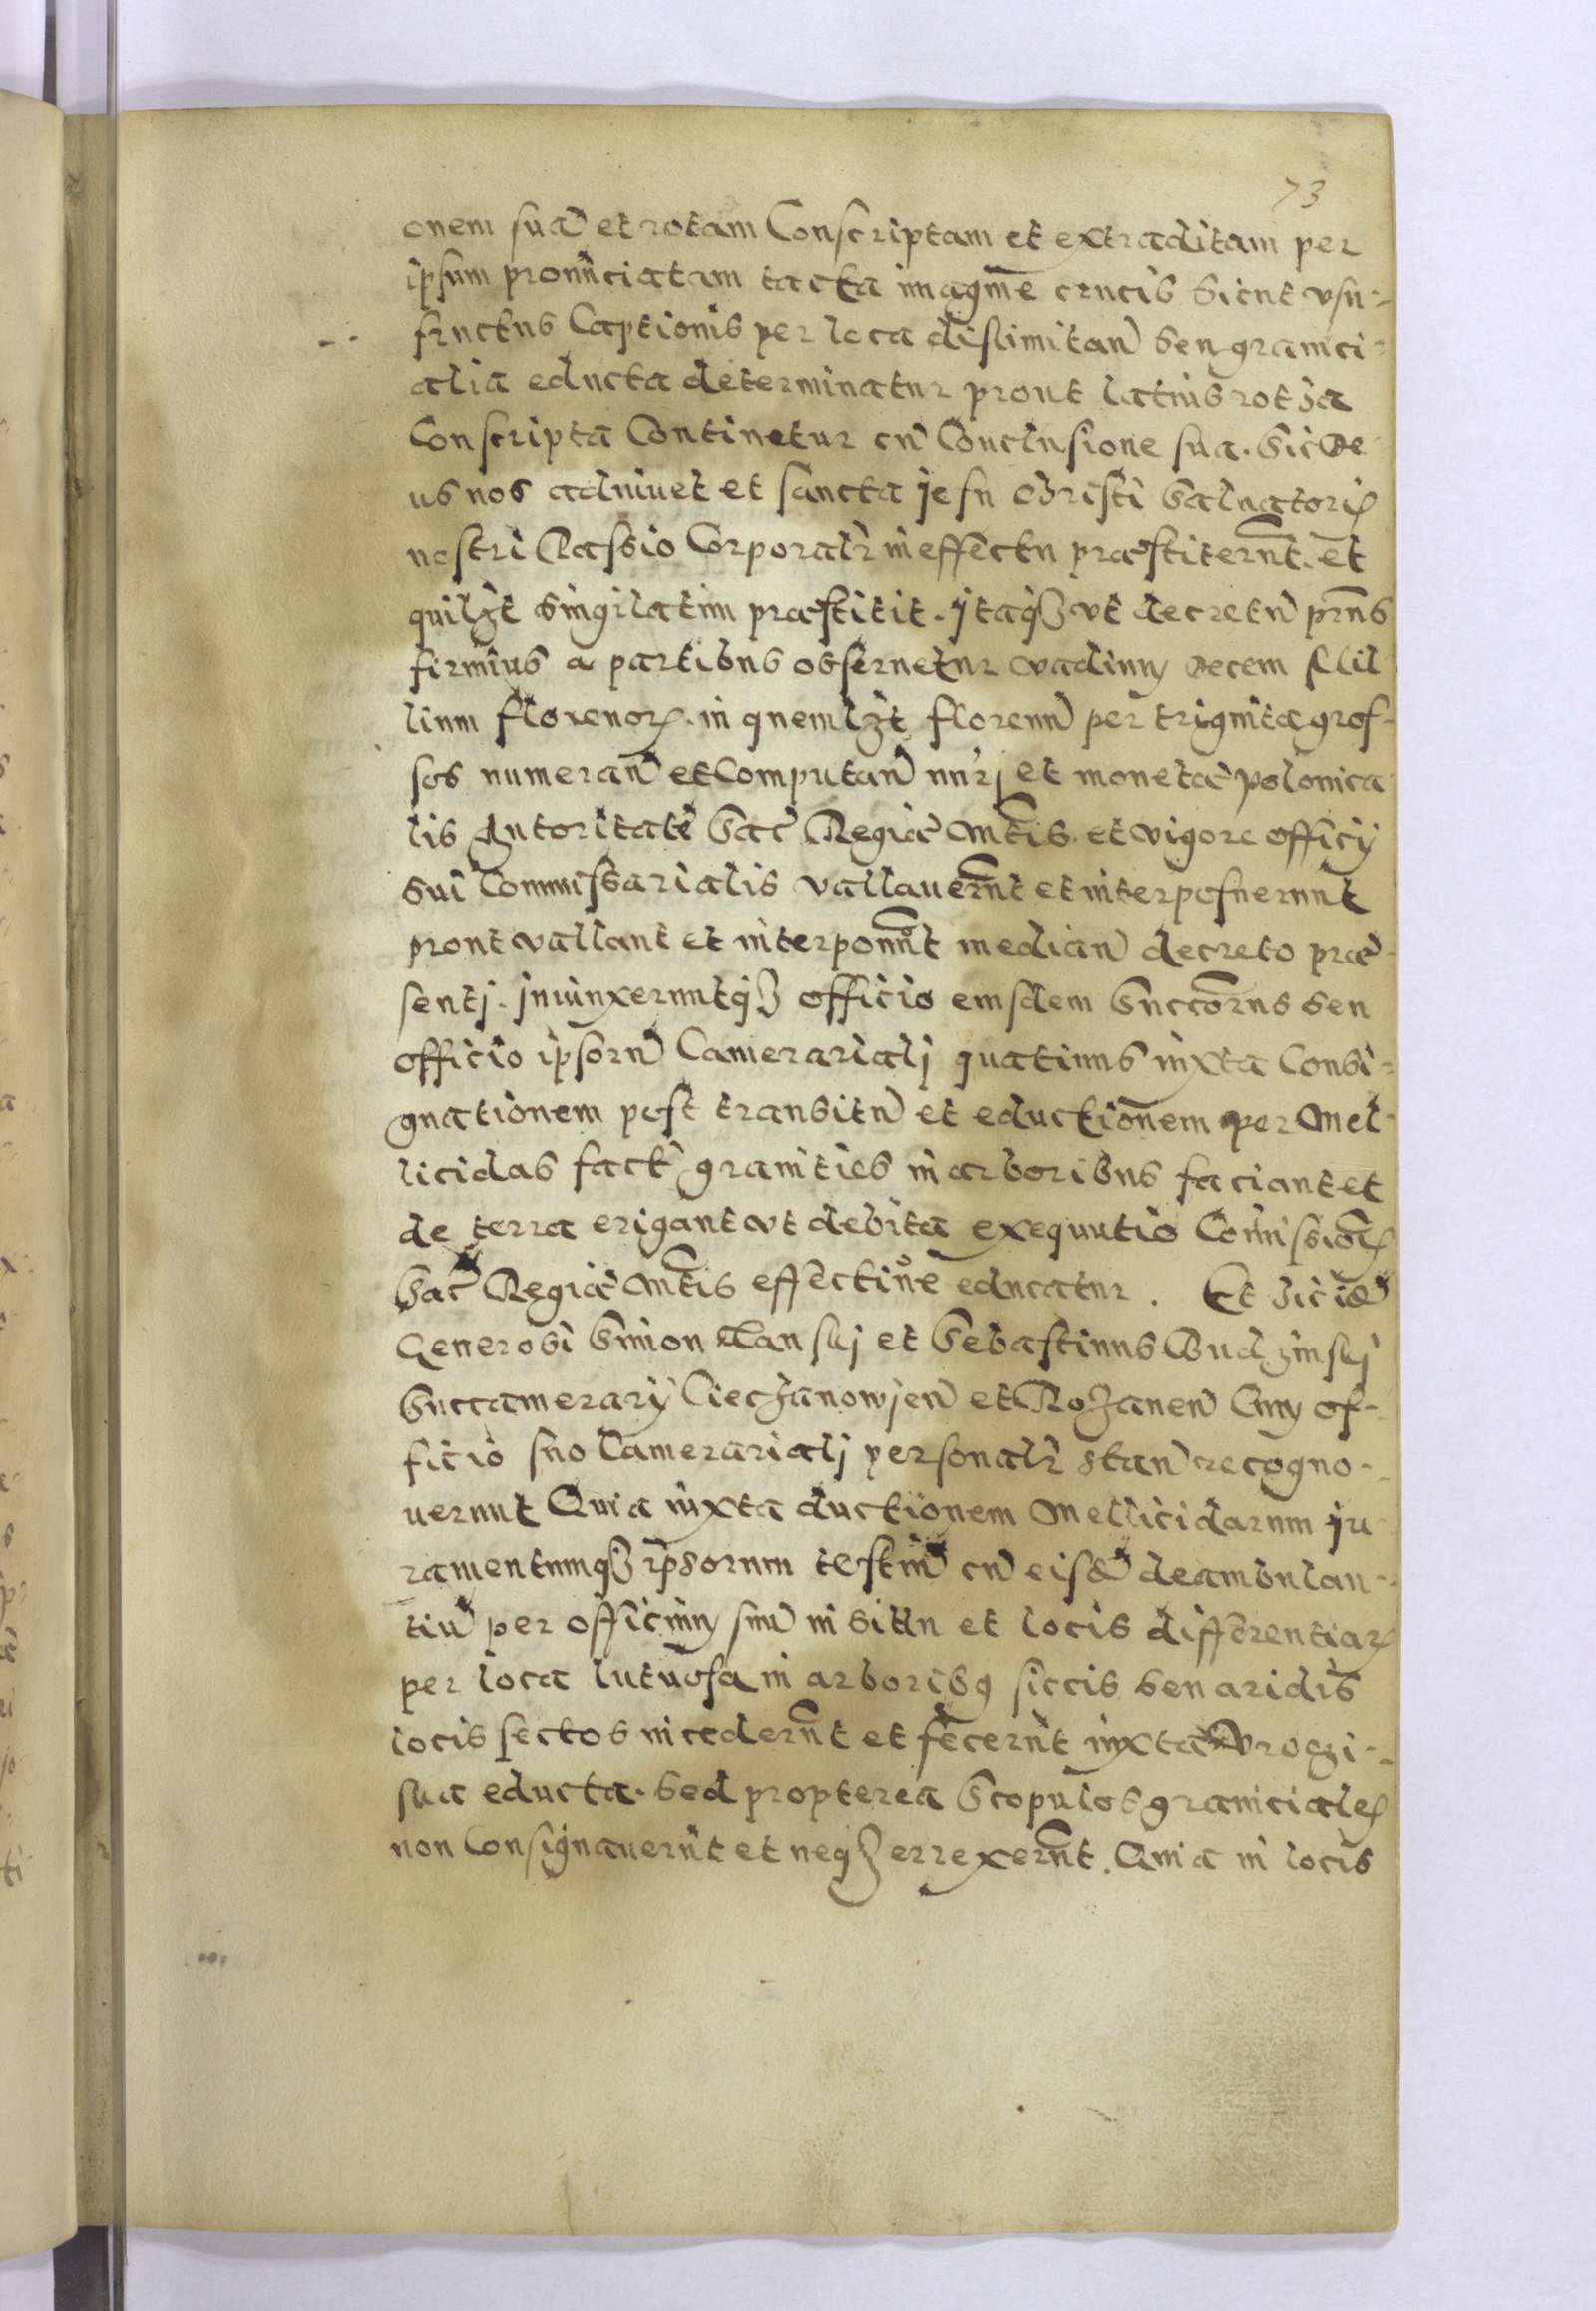 73
onem suā et rotam Conscriptam et extraditam per
ipsum pronūnciatam tacta imagine crucis sicut usu-
fructus Captionis per loca dislimitan̄ seu granici-
alia educta determinatur prout latius rotha
Conscripta Continetur cū Conclusione sua. Sic De
us nos adiuuet et sancta jesu Christi Saluatoris
nostri Passio Corporalr̄ in effectu præstiterūnt. et
quilzt singilatim præstitit. jtaqz ut decretū prn̄s
firmius a partibus obseruetur vadium decem Mil
lium florenor. in quemlzt florenū per triginta gros-
sos numeran̄ et Computan̄ nn̄rj et monetæ polonica
lis Autoritate Sac̄ Regiæ Mt̄is et vigore officij
sui Commissarialis vallauerūnt et interposuerunt
prout vallant et interponūnt median̄ decreto præ-
sentj. jniunxeruntqz officio eiusdem Succōrus seu
officio ipsorū Camerarialj quatinus iuxta Consi-
gnationem post transitū et eductionem per Mel-
licidas fact granities in arboribus faciant et
de terra erigant ut debita exequutio Com̄issiōis
Sac̄ Regiæ Mt̄is effectiue educatur. Et hic idē
Generosi Simon et Sebastinus Budzinskj
Succamerarij Ciechanowjen̄ et Rozanen̄ Cum of-
ficio suo Camerarialj personalr̄ stan̄ recogno-
uerunt Quia iuxta ductionem Mellicidarum ju
ramentumqz ipsorum testiū cū eisdē deambulan-
tiū per officium suū in situ et locis differentiar
per loca lutuosa in arboribus siccis seu aridis
locis sectos incederūnt et fecerūnt iuxta
sua educta. sed propterea Scopulos graniciales
non Consignauerūnt et neqz errexerūnt. Quia in locis